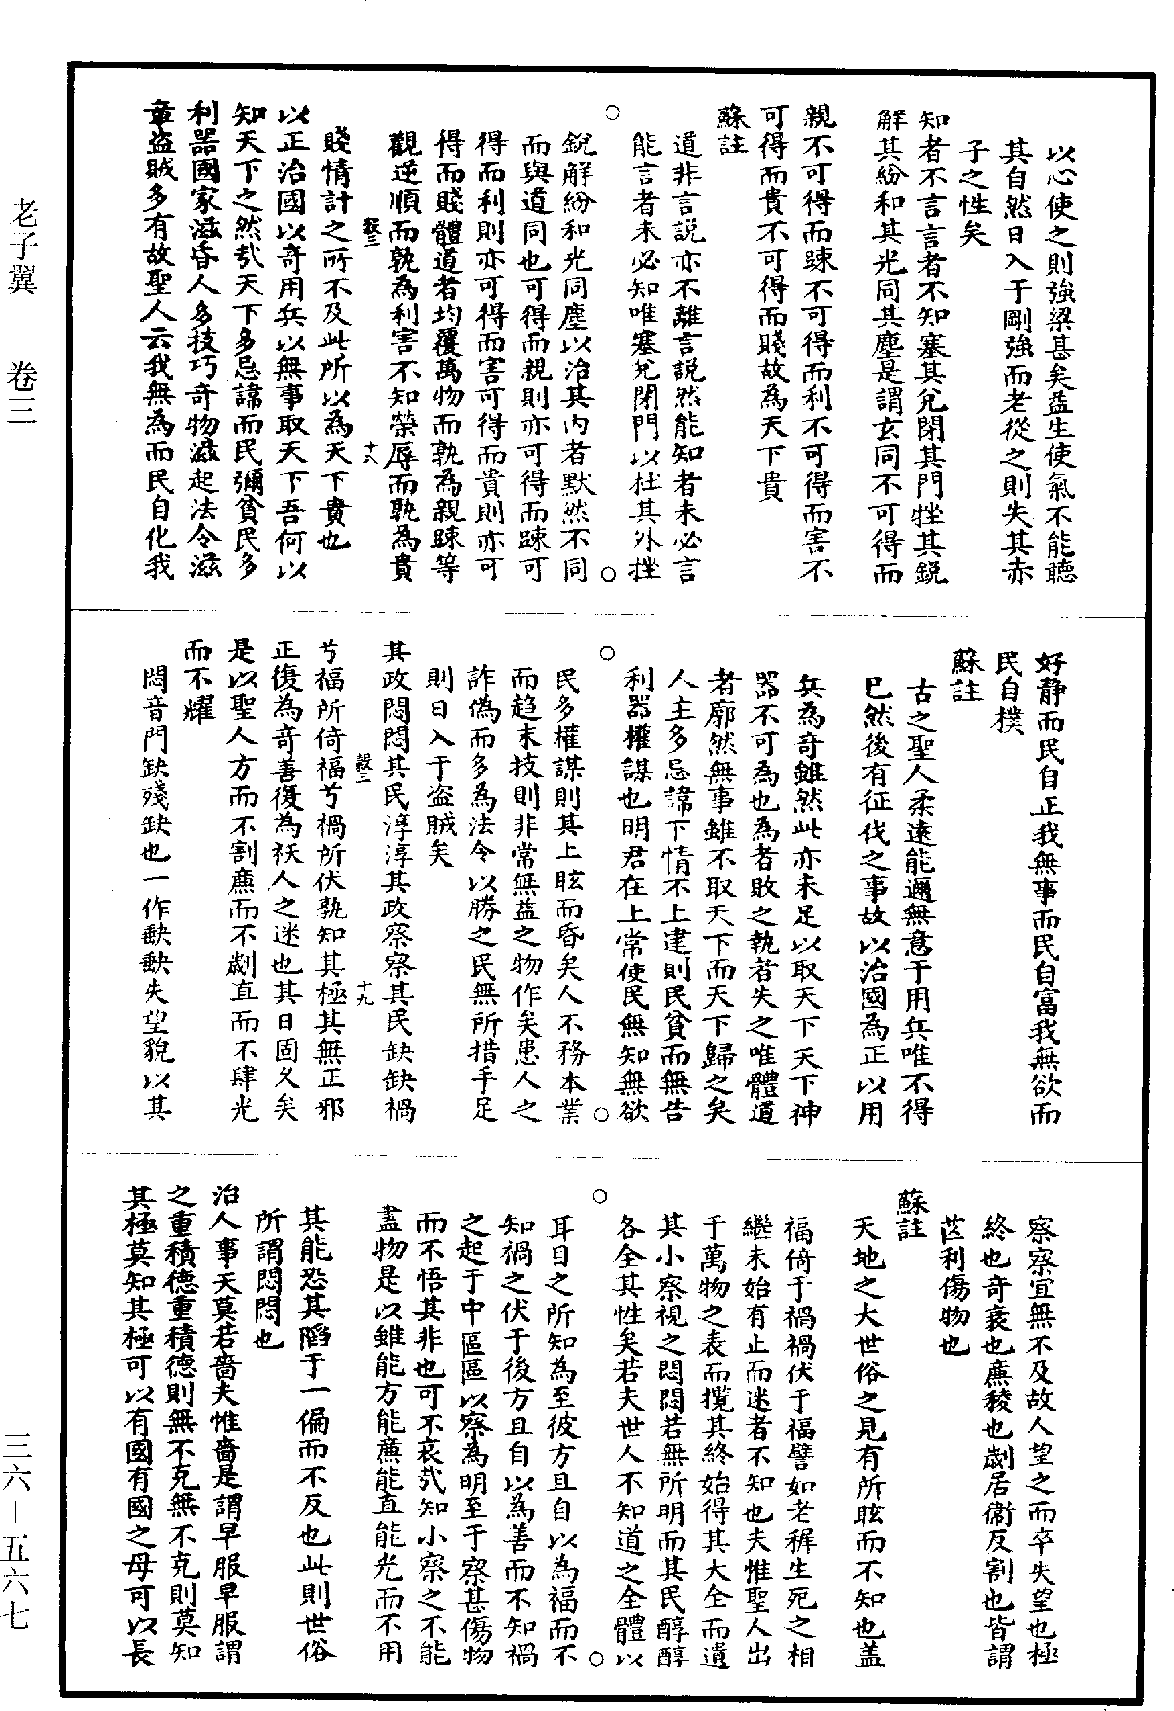 以心使之則強梁甚矣益生使氣不能聽
其自然日入于剛強而老從之則失其赤
子之性矣
知者不言言者不知塞其兌閉其門挫其銳
解其紛和其光同其塵是謂玄同不可得而
親不可得而踈不可得而利不可得而害不
可得而貴不可得而賤故為天下貴
蘇註
道非言說亦不離言說然能知者未必言
能言者未必知唯塞兌閉門以杜其外挫
銳解紛和光同塵以治其內者默然不同
而與道同也可得而親則亦可得而踈可
得而利則亦可得而害可得而貴則亦可
得而賤體道者均覆萬物而孰為親踈等
觀逆順而孰為利害不知榮辱而孰為貴
穀三 十八
賤情計之所不及此所以為天下貴也
以正治國以奇用兵以無事取天下吾何以
知天下之然哉天下多忌諱而民彌貧民多
利器國家滋昏人多技巧奇物滋起法令滋
章盜賊多有故聖人云我無為而民自化我
好靜而民自正我無事而民自富我無欲而
民自樸
蘇註
古之聖人柔遠能邇無意于用兵唯不得
已然後有征伐之事故以治國為正以用
兵為奇雖然此亦未足以取天下天下神
器不可為也為者敗之執者失之唯體道
者廓然無事雖不取天下而天下歸之矣
人主多忌諱下情不上達則民貧而無告
利器權謀也明君在上常使民無知無欲
民多權謀則其上眩而昏矣人不務本業
而趨末技則非常無益之物作矣患人之
詐偽而多為法令以勝之民無所措手足
則日入于盜賊矣
其政悶悶其民淳淳其政察察其民缺缺禍
穀三 十九
兮福所倚福兮禍所伏孰知其極其無正邪
正復為奇善復為祅人之迷也其日固久矣
是以聖人方而不割廉而不劌直而不肆光
而不耀
悶音門缺殘缺也一作𡙇𡙇失望貌以其
察察宜無不及故人望之而卒失望也極
終也奇衺也廉稜也劌居衞反割也皆謂
芒利傷物也
蘇註
天地之大世俗之見有所眩而不知也盖
福倚于禍禍伏于福譬如老穉生死之相
繼未始有止而迷者不知也夫惟聖人出
于萬物之表而攬其終始得其大全而遺
其小察視之悶悶若無所明而其民醇醇
各全其性矣若夫世人不知道之全體以
耳目之所知為至彼方且自以為福而不
知禍之伏于後方且自以為善而不知禍
之起于中區區以察為明至于察甚傷物
而不悟其非也可不哀哉知小察之不能
盡物是以雖能方能廉能直能光而不用
其能恐其陷于一偏而不反也此則世俗
所謂悶悶也
治人事天莫若嗇夫惟嗇是謂早服早服謂
之重積德重積德則無不克無不克則莫知
其極莫知其極可以有國有國之母可以長
老子翼 卷三
三六—五六七